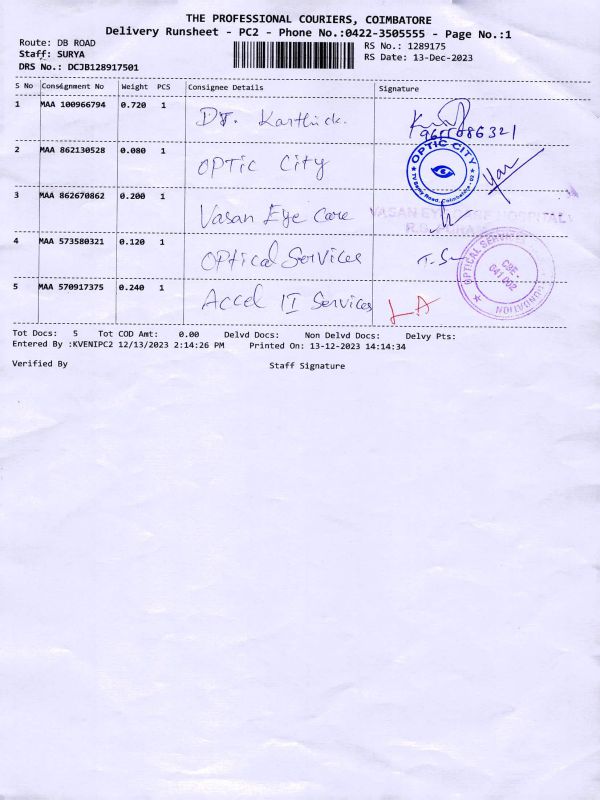 THE PROFESSIONAL COURIERS, COIMBATORE
Delivery Runsheet - PC2 - Phone No.:0422-3505555 - Page No.:1
Route: DB ROAD
RS No.: 1289175
Staff: SURYA
RS Date: 13-Dec-2023
DRS No.: DCJB128917501
S No Consignment No Weight PCS Consignee Details Signature
1 MAA 100966794 0.720 1 DT. Karthick.
2 MAA 862130528 0.080 1 OPTIC City
OPTIC CITY
3 MAA 862670862 0.200 1 Vasan Eye Care
VASAN EYE CARE HOSPITAL
4 MAA 573580321 0.120 1 Optical Services T.S
OPTICAL SERVICES
CBE.
641 002
5 MAA 570917375 0.240 1 Accel IT Services LA
Tot Docs: 5 Tot COD Amt: 0.00 Delvd Docs: Non Delvd Docs: Delvy Pts:
Entered By :KVENIPC2 12/13/2023 2:14:26 PM Printed On: 13-12-2023 14:14:34
Verified By Staff Signature